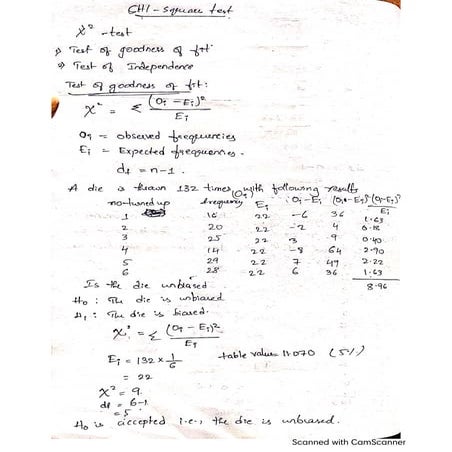 CHI - square test
χ² - test
1) Test of goodness of fit
2) Test of Independence
Test of goodness of fit:
χ² = Σ (Oi - Ei)² / Ei
Oi = observed frequencies
Ei = Expected frequencies.
df = n-1.
A die is thrown 132 times with following results
no. turned up frequency (Oi) Ei Oi - Ei (Oi - Ei)² (Oi - Ei)² / Ei
1 16 22 -6 36 1.63
2 20 22 -2 4 0.18
3 25 22 3 9 0.40
4 14 22 -8 64 2.90
5 29 22 7 49 2.22
6 28 22 6 36 1.63
Is the die unbiased 8.96
H0 : The die is unbiased
H1 : The die is biased.
χ² = Σ (Oi - Ei)² / Ei
Ei = 132 × 1/6 table value 11.070 (5%)
= 22
χ² = 9
df = 6-1
= 5
H0 is accepted i.e., the die is unbiased.
Scanned with CamScanner